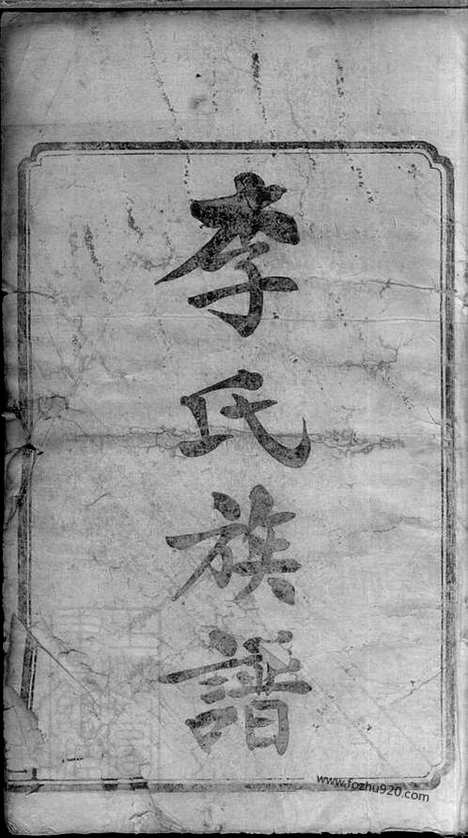 李氏族譜
www.fozhu920.com